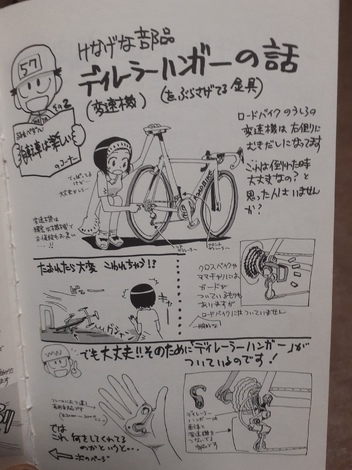 けなげな部品
ディレーラーハンガーの話
(変速機)
(をぶらさげてる金具)
57
その2
自転車は楽しい
のコーナー
ロードバイクのうしろの
変速機は右側に
むきだしになってます
これは倒れた時
大丈夫なの?と
思った人いませんか?
たおれたら大変
こわれちゃう!?
ガシャ
クロスバイクや
ママチャリには
ガードが
ついているものも
ありますが
ロードバイクにはついていません
でも大丈夫!!そのために「ディレーラーハンガー」が
ついているのです!
ディレーラー
ハンガーは
車体と
変速機を
つないでる
では
これ何をしてくれてる
のかというと…
← 次のページ